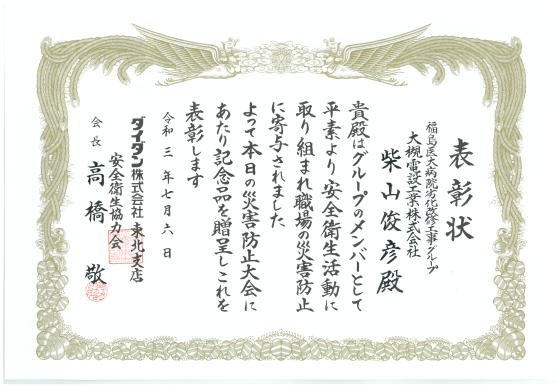 表彰状
福島医大病院劣化改修工事グループ
大槻電設工業株式会社
柴山俊彦殿
貴殿はグループのメンバーとして
平素より安全衛生活動に
取り組まれ職場の災害防止
に寄与されました
よって本日の災害防止大会に
あたり記念品を贈呈しこれを
表彰します
令和三年七月六日
ダイダン株式会社東北支店
安全衛生協力会
会長 高橋敬